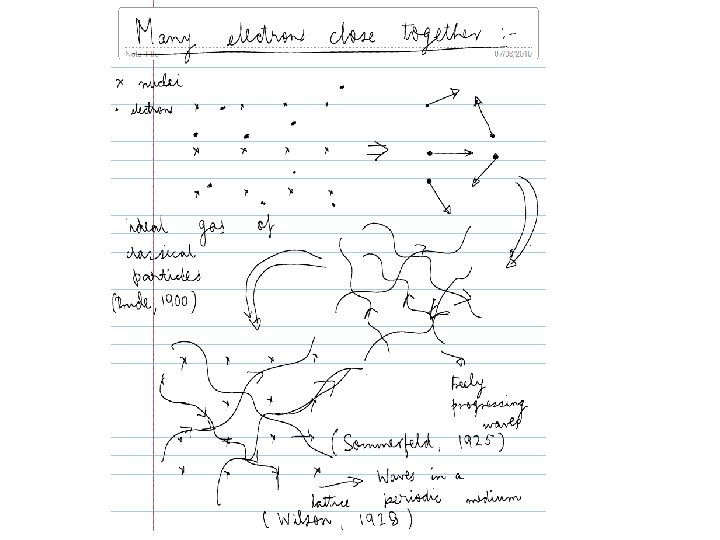 Many electrons close together :-
Note Title
07/08/2010
x nuclei
• electrons
ideal gas of
classical
particles
(Drude, 1900)
freely
progressing
waves
(Sommerfeld, 1925)
Waves in a
lattice periodic medium
(Wilson, 1928)